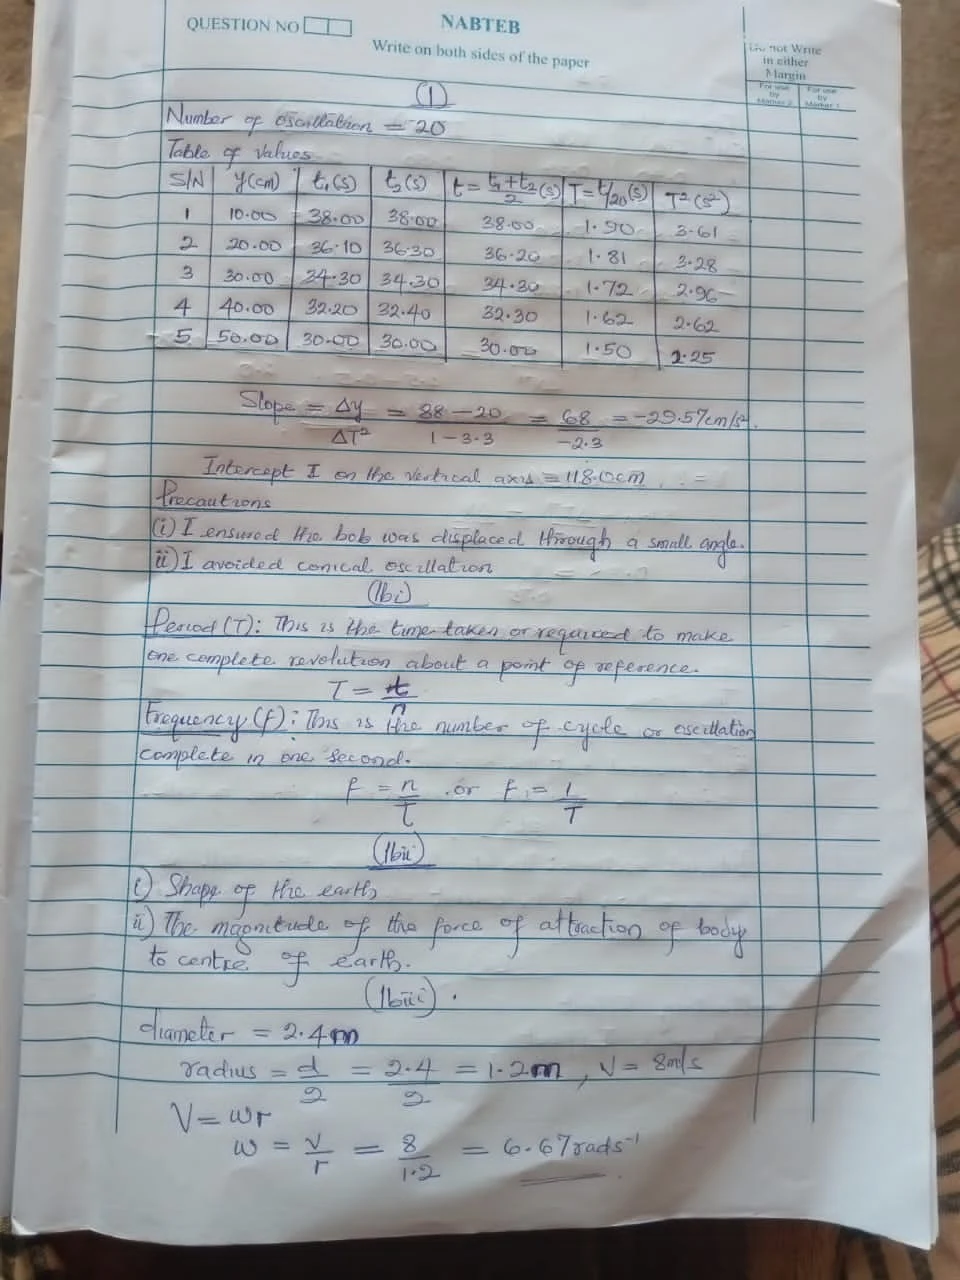 QUESTION NO
NABTEB
Write on both sides of the paper
Do not Write
in either
Margin
For use
by
Marker 2
For use
by
Marker 1
(1)
Number of oscillation = 20
Table of values
S/N y(cm) t₁(s) t₂(s) t = t₁+t₂/2 (s) T = t/20 (s) T² (s²)
1 10.00 38.00 38.00 38.00 1.90 3.61
2 20.00 36.10 36.30 36.20 1.81 3.28
3 30.00 34.30 34.30 34.30 1.72 2.96
4 40.00 32.20 32.40 32.30 1.62 2.62
5 50.00 30.00 30.00 30.00 1.50 2.25
Slope = Δy/ΔT² = 88-20/1-3.3 = 68/-2.3 = -29.57cm/s².
Intercept I on the vertical axis = 118.0cm
Precautions
(i) I ensured the bob was displaced through a small angle.
ii) I avoided conical oscillation
(1bi)
Period (T): This is the time taken or required to make
one complete revolution about a point of reference.
T = t/n
Frequency (f): This is the number of cycle or oscillation
complete in one second.
f = n/t or f = 1/T
(1bii)
i) Shape of the earth
ii) The magnitude of the force of attraction of body
to centre of earth.
(1biii).
diameter = 2.4m
radius = d/2 = 2.4/2 = 1.2m, V = 8m/s
V = wr
w = v/r = 8/1.2 = 6.67rads⁻¹